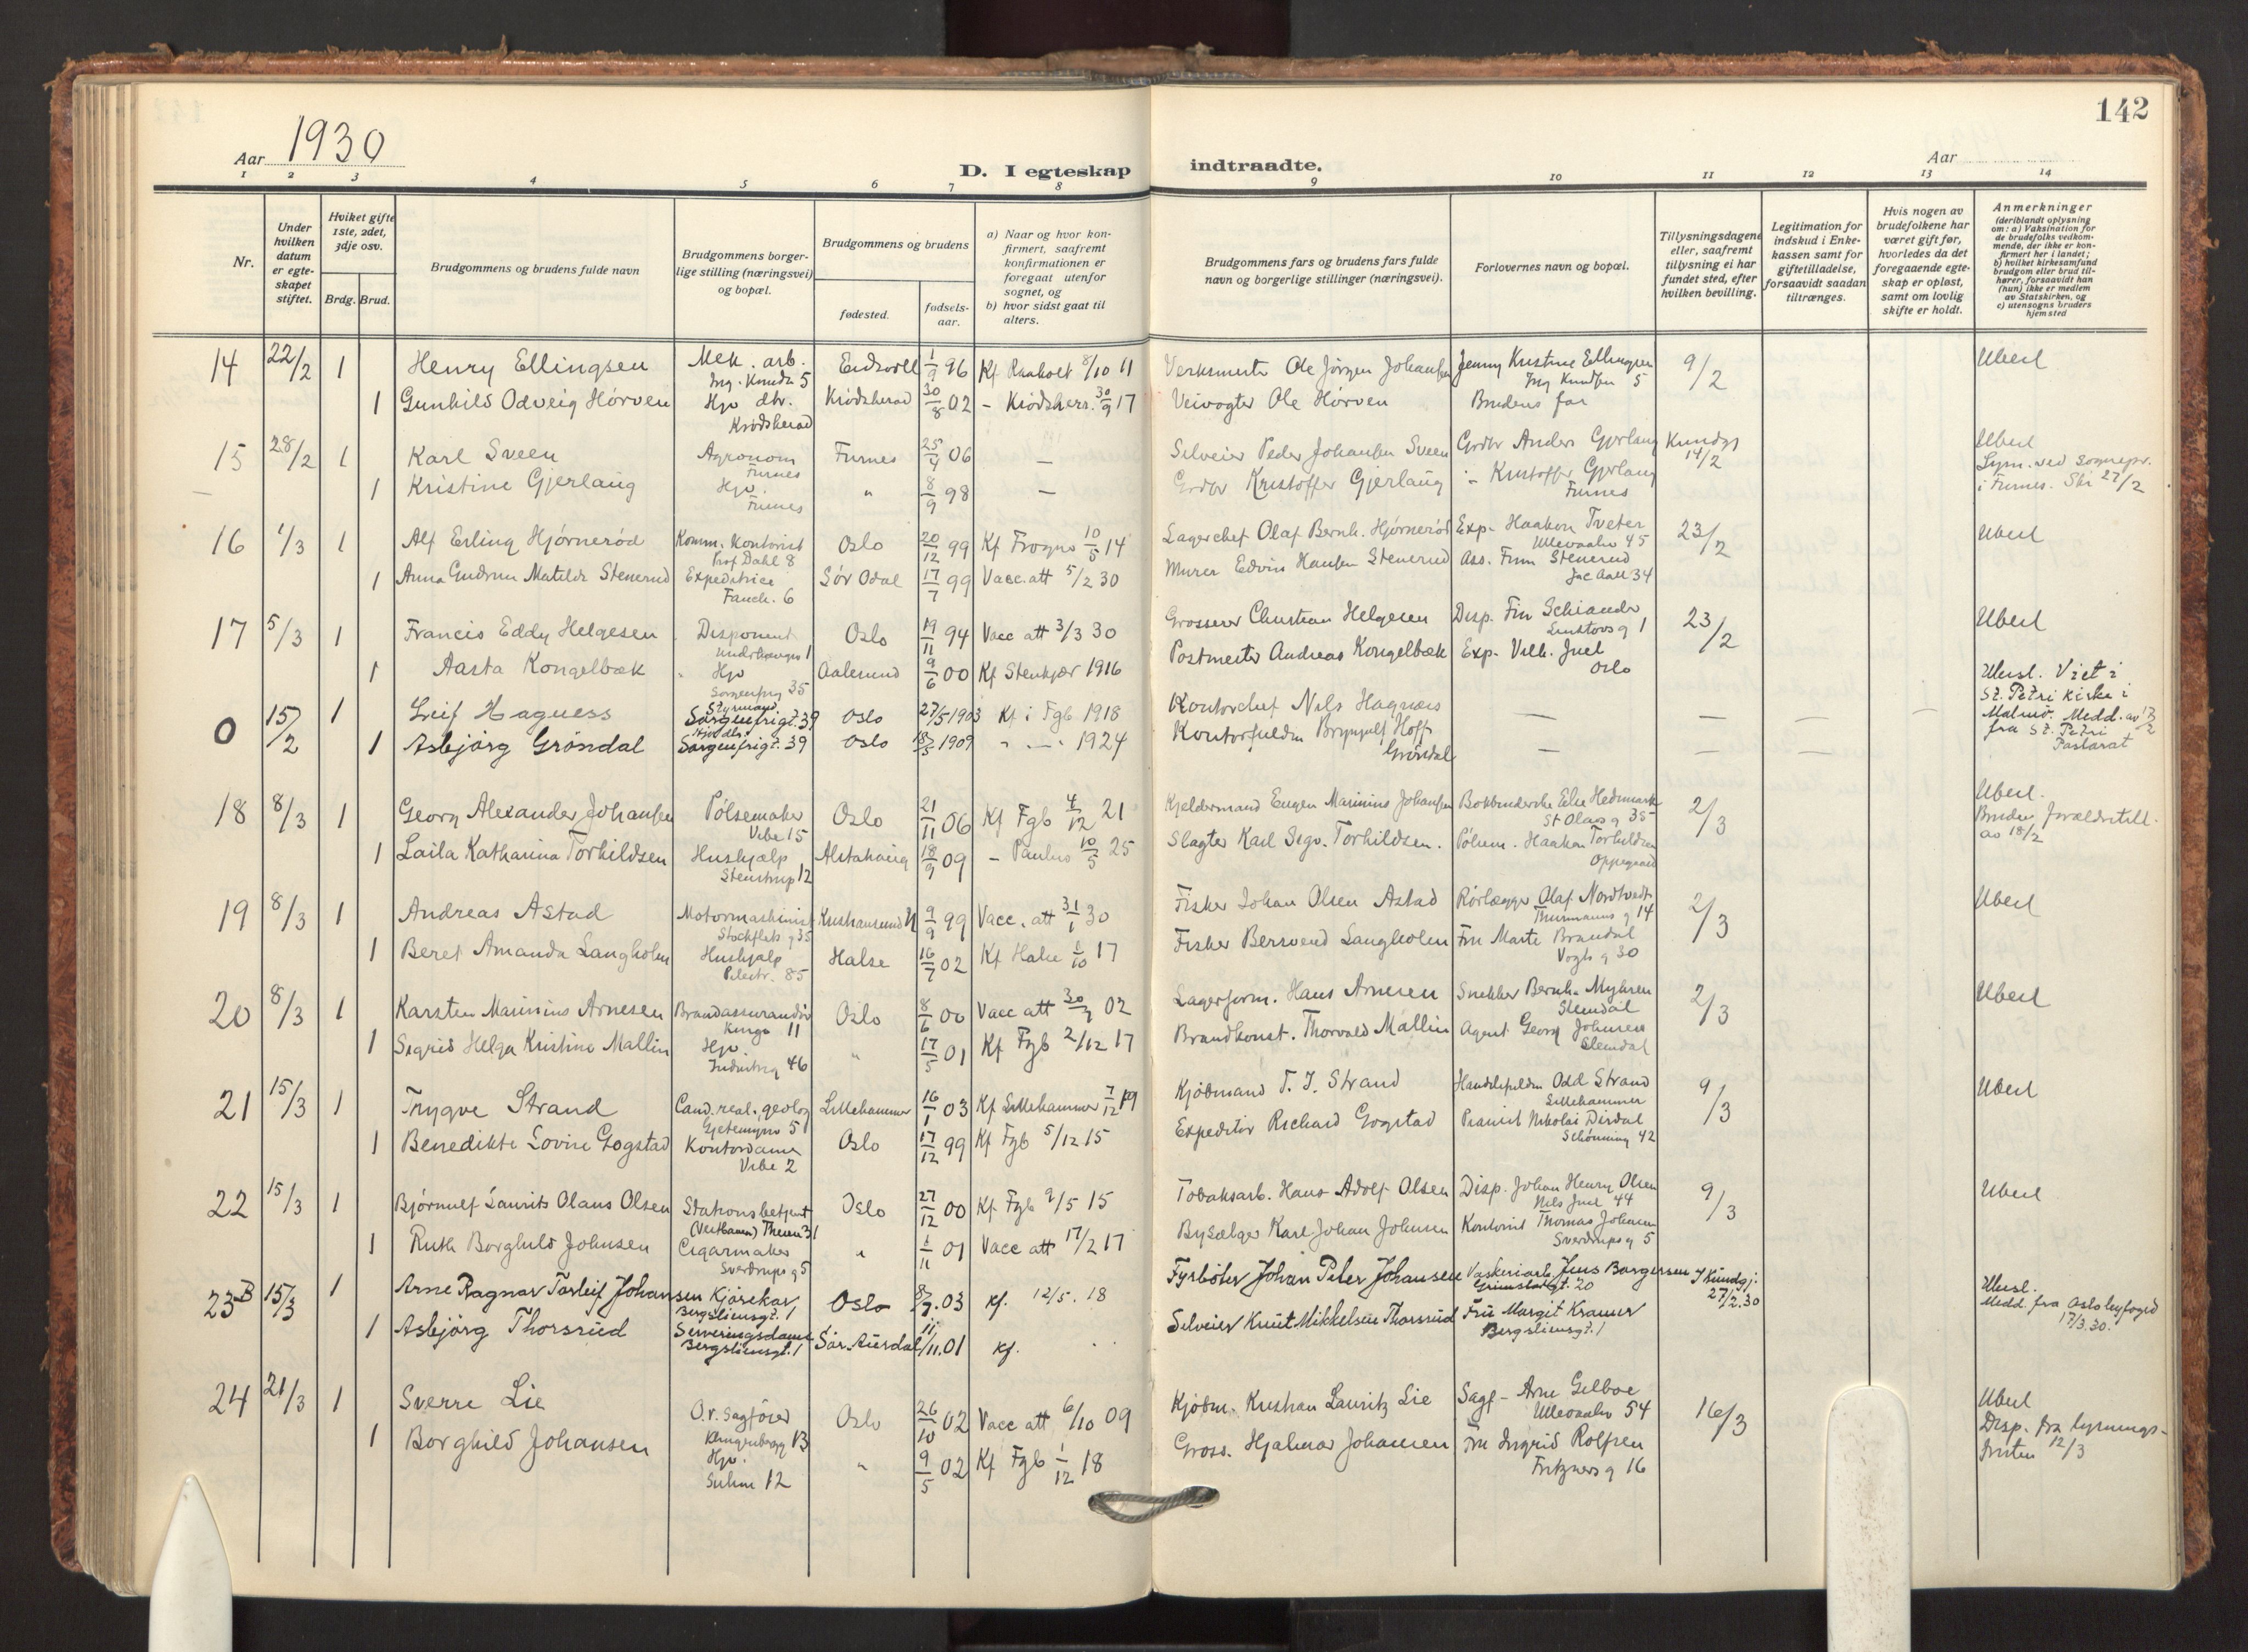 142
Aar 1930
D. I egteskap indtraadte.
Aar
1 2 3 4 5 6 7 8 9 10 11 12 13 14
Nr.
Under hvilken datum er egteskapet stiftet.
Hviket gifte 1ste, 2det, 3dje osv.
Brdg. Brud.
Brudgommens og brudens fulde navn
Brudgommens borgerlige stilling (næringsvei) og bopæl.
Brudgommens og brudens
fødested.
fødselsaar.
a) Naar og hvor konfirmert, saafremt konfirmationen er foregaat utenfor sognet, og
b) hvor sidst gaat til alters.
Brudgommens fars og brudens fars fulde navn og borgerlige stillinger (næringsvei).
Forlovernes navn og bopæl.
Tillysningsdagene eller, saafremt tillysning ei har fundet sted, efter hvilken bevilling.
Legitimation for indskud i Enkekassen samt for giftetilladelse, forsaavidt saadan tiltrænges.
Hvis nogen av brudefolkene har været gift før, hvorledes da det foregaaende egteskap er opløst, samt om lovlig skifte er holdt.
Anmerkninger (deriblandt oplysning om: a) Vaksination for de brudefolks vedkommende, der ikke er konfirmert her i landet; b) hvilket kirkesamfund brudgom eller brud tilhører, forsaavidt han (hun) ikke er medlem av Statskirken, og c) utensogns bruders hjemsted
14 22/2 1 Henry Ellingsen Mek. arb. Ing. Knuds 5 Eidsvoll 1/9 96 Kf Raaholt 8/10 11 Verksmester Ole Jørgen Johansen Jenny Kristine Ellingsen Ing Knudsen 5 9/2 Uberl
1 Gunhild Odveig Hörven Hjv dtr. Krödsherad Krödsherad 30/8 02 - Krödsherr. 30/9 17 Veivogter Ole Hørven Brudens far
15 28/2 1 Karl Sveen Agronom Furnes Furnes 25/4 06 — Selveier Peder Johansen Sveen Grdbr Anders Gjerlaug Kundgj 14/2 Uberl
— 1 Kristine Gjerlaug Hjv. Furnes " 8/9 98 — Grdbr Kristoffer Gjerlaug - Kristoffer Gjerlaug Furnes Lysn. ved Sognepr. i Furnes. Ski 27/2
16 1/3 1 Alf Erling Hjørnerød Komm. Kontorist Prof Dahl 8 Oslo 20/12 99 Kf Frogner 10/5 14 Lagerchef Olaf Bernh. Hjørnerød Exp. Haakon Tveter Ullevaalsv 45 23/2 Uberl
1 Anna Gudrun Matilde Stenerud Expeditrice Fauch. 6 Sör Odal 17/7 99 Vacc. att 5/2 30 Murer Edvin Hansen Stenerud Ass. Finn Stenerud Jac Aall 34
17 5/3 1 Francis Eddy Helgesen Disponent Underhaugsv 1 Oslo 19/11 94 Vacc att 3/3 30 Grosserer Christian Helgesen Disp. Fin Schiander 1 23/2 Uberl
1 Aasta Kongelbæk Hjv Sorgenfrig 35 Aalesund 9/6 00 Kf Stenkjær 1916 Postmester Andreas Kongelbæk Exp. Vilh. Juel Oslo
0 15/2 1 Leif Hagness Styrmand Sorgenfrigt. 39 Oslo 27/5 1903 Kf i Fgb 1918 Kontorchef Nils Hagnæs — — — — Utensl. Viet i St. Petri Kirke i Malmö. Medd. av 17/2 fra St. Petri Pastorat
1 Asbjörg Gröndal Hjv dtr. Sorgenfrigt. 39 Oslo 1909 " — " 1924 Kontorfuldm Brynjulf Hoff Gröndal — — —
18 8/3 1 Georg Alexander Johansen Pölsemaker Vibe 15 Oslo 21/11 06 Kf Fgb 4/12 21 Kjeldermand Eugen Marinius Johansen Bokbinderske Else Hedemark St Olavs g 35 2/3 Uberl.
1 Laila Katharina Torhildsen Hushjælp Stenstrup 12 Alstahaug 18/9 09 - Paulus 10/5 25 Slagter Karl Sigv. Torhildsen. Pölsem. Haakon Torhildsen Oppegaard Bruden forældretill. av 18/2
19 8/3 1 Andreas Astad Motormaskinist Stockflets g 35 Kristiansund N 9/9 99 Vacc. att 31/1 30 Fisker Johan Olsen Astad Rörlægger Olaf Nordtvedt Thurmanns g 14 2/3 Uberl
1 Beret Amanda Langholm Hushjælp Pilestr. 85 Halse 16/7 02 Kf Halse 1/10 17 Fisker Bersvend Langholen Fru Marte Brandal Vogts g 30
20 8/3 1 Karsten Marinius Arnesen Brandassurandör Kings 11 Oslo 8/6 00 Vacc att 02 Lagerform. Hans Arnesen Snekker Bernh. Myhren Slemdal 2/3 Uberl
1 Sigrid Helga Kristine Mallin Hjv. Industrig 46 " 17/5 01 Kf Fgb 2/12 17 Brandkonst. Thorvald Mallin Agent Georg Johnsen Slemdal
21 15/3 1 Trygve Strand Cand. real., geolog Gjetemyrsv 5 Lillehammer 16/1 03 Kf Lillehammer 7/12 19 Kjöbmand T. J. Strand Handelsfuldm Odd Strand Lillehammer 9/3 Uberl
1 Benedikte Lovise Gogstad Kontordame Vibe 2 Oslo 17/12 99 Kf Fgb 5/12 15 Expeditör Richard Gogstad Pianist Nikolai Dirdal Schönning 42
22 15/3 1 Bjørnulf Laurits Olaus Olsen Stationsbetjent (Vestbanen) Theresg 31 Oslo 27/12 00 Kf Fgb 9/5 15 Tobaksarb. Hans Adolf Olsen Disp. Johan Henry Olsen Nils Juel 44 9/3 Uberl
1 Ruth Borghild Johnsen Cigarmaker Sverdrups g 5 " 1/11 01 Vacc att 17/2 17 Bysælger Karl Johan Johnsen Kontorist Thomas Johnsen Sverdrups g 5
23 B 15/3 1 Arne Ragnar Torleif Johansen Kjörekar Bergsliensgt. 1 Oslo 03 Kf. 12/5. 18 Fyrböter Johan Peter Johansen Vaskeriarb. Jens Borgersen Grimstadgt. 20 Kundgj: 27/2.30 Utensl. Medd. fra Oslo byfogd 17/3.30.
1 Asbjörg Thorsrud Serveringsdame Bergsliensgt. 1 Sör. Aurdal 11/11.01 Kf. Selveier Knut Mikkelsen Thorsrud Fru Margit Kramer Bergsliensgt. 1
24 21/3 1 Sverre Lie O.r. Sagförer Klingenbergg B Oslo 26/10 02 Vacc att 6/10 09 Kjöbm. Kristian Lauritz Lie Sagf. Arne Gilboe Ullevaalsv 54 16/3 Uberl
1 Borghild Johansen Hjv. Suhm 12 " 9/5 02 Kf Fgb 1/12 18 Gross. Hjalmar Johansen Fru Ingrid Rolfsen Fritzners g 16 Disp. fra lysningsfristen 12/3